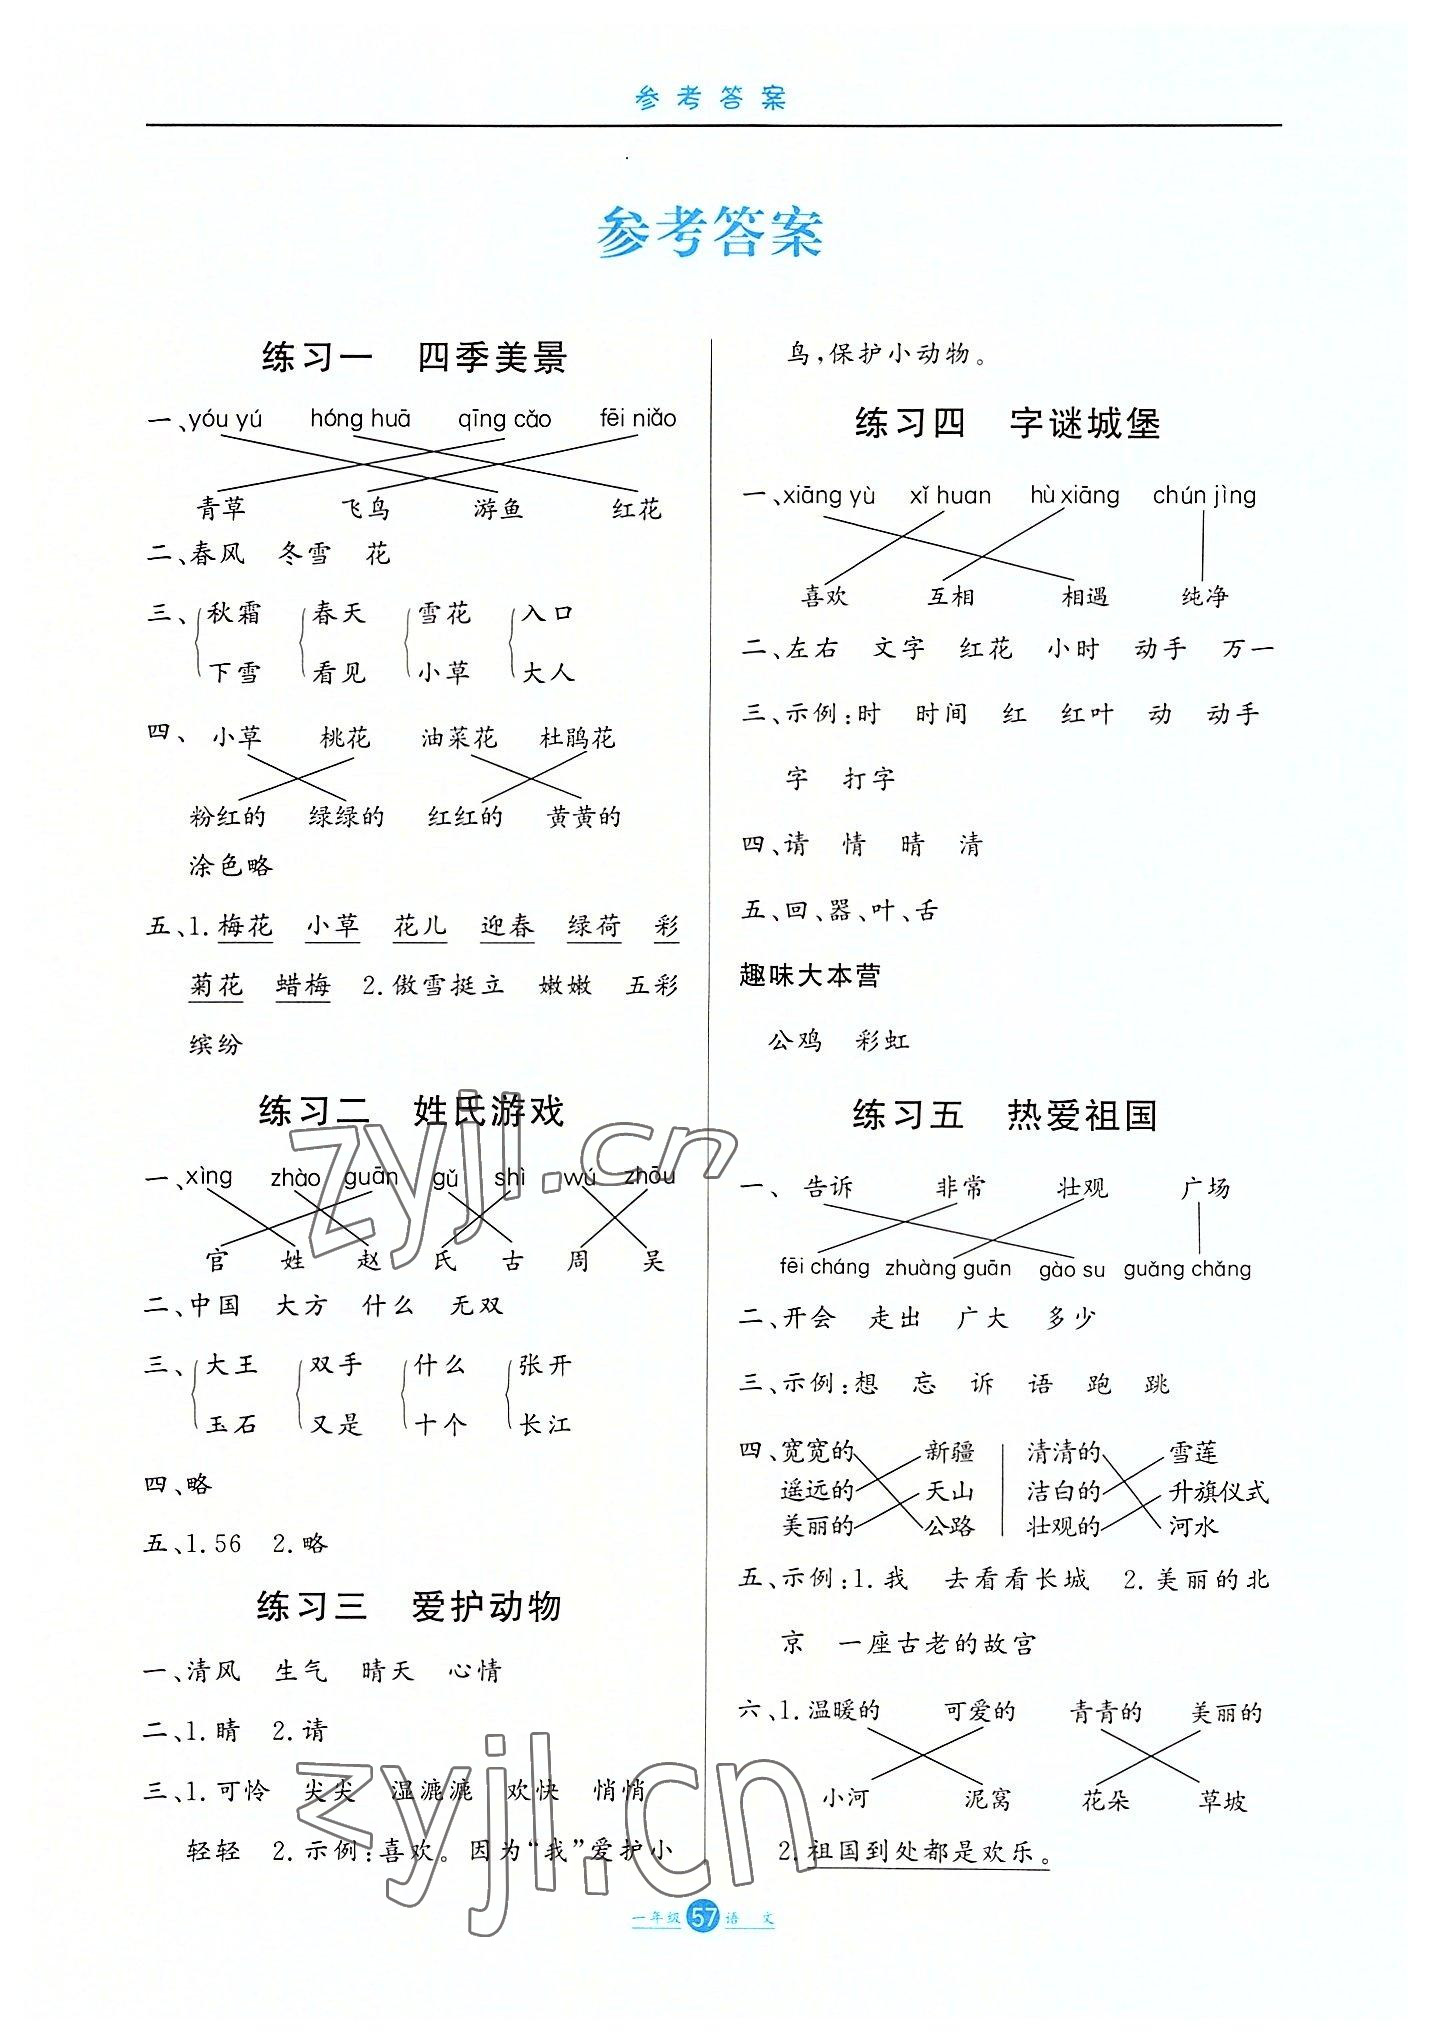 参考答案
参考答案
练习一 四季美景
一、yóu yú hóng huā qīng cǎo fēi niǎo
青草 飞鸟 游鱼 红花
二、春风 冬雪 花
三、秋霜 春天 雪花 入口
下雪 看见 小草 大人
四、小草 桃花 油菜花 杜鹃花
粉红的 绿绿的 红红的 黄黄的
涂色略
五、1.梅花 小草 花儿 迎春 绿荷 彩
菊花 蜡梅 2.傲雪挺立 嫩嫩 五彩
缤纷
练习二 姓氏游戏
一、xìng zhào guān gǔ shì wú zhōu
官 姓 赵 氏 古 周 吴
二、中国 大方 什么 无双
三、大王 双手 什么 张开
玉石 又是 十个 长江
四、略
五、1.56 2.略
练习三 爱护动物
一、清风 生气 晴天 心情
二、1.睛 2.请
三、1.可怜 尖尖 湿漉漉 欢快 悄悄
轻轻 2.示例:喜欢。因为“我”爱护小
鸟,保护小动物。
练习四 字谜城堡
一、xiāng yù xǐ huan hù xiāng chún jìng
喜欢 互相 相遇 纯净
二、左右 文字 红花 小时 动手 万一
三、示例:时 时间 红 红叶 动 动手
字 打字
四、请 情 晴 清
五、回、器、叶、舌
趣味大本营
公鸡 彩虹
练习五 热爱祖国
一、告诉 非常 壮观 广场
fēi cháng zhuàng guān gào su guǎng chǎng
二、开会 走出 广大 多少
三、示例:想 忘 诉 语 跑 跳
四、宽宽的 新疆 清清的 雪莲
遥远的 天山 洁白的 升旗仪式
美丽的 公路 壮观的 河水
五、示例:1.我 去看看长城 2.美丽的北
京 一座古老的故宫
六、1.温暖的 可爱的 青青的 美丽的
小河 泥窝 花朵 草坡
2.祖国到处都是欢乐。
一年级 57 语 文
zyjl.cn
zyjl.cn